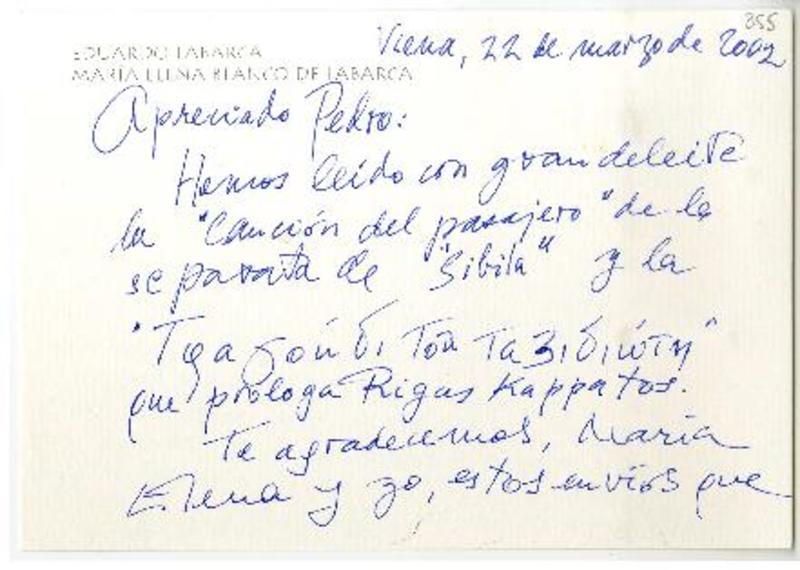 355
Viena, 22 de marzo de 2002
EDUARDO LABARCA
MARÍA ELENA BLANCO DE LABARCA
Apreciado Pedro:
Hemos leído con gran deleite
la "Canción del pasajero" de la
separata de "Sibila" y la
"Τραγούδι του ταξιδιώτη"
que prologa Rigas Kappatos.
Te agradecemos, María
Elena y yo, estos envíos que